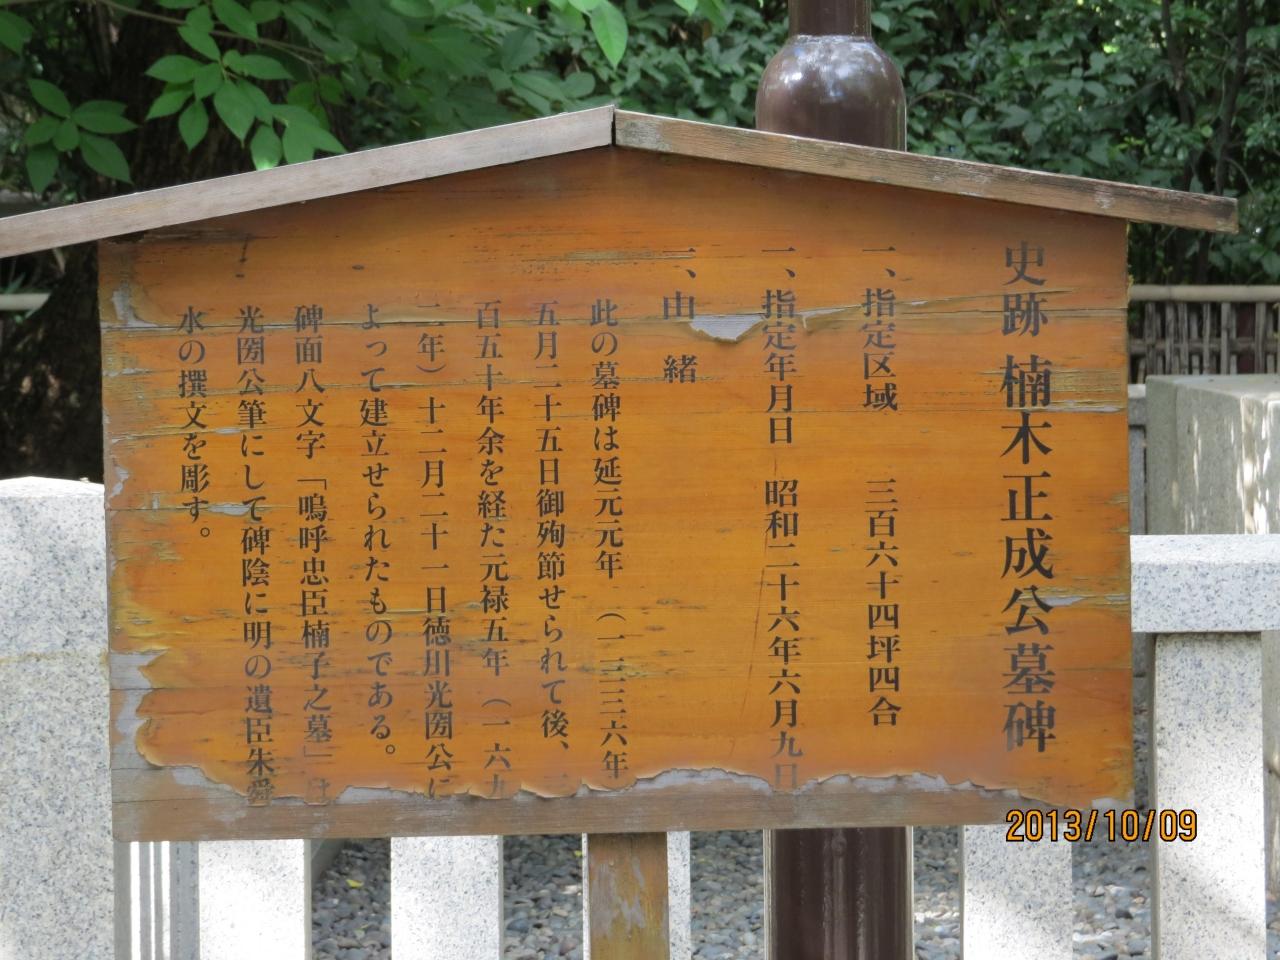 史跡 楠木正成公墓碑
一、指定区域 三百六十四坪四合
一、指定年月日 昭和二十六年六月九日
一、由 緒
此の墓碑は延元元年（一三三六年
五月二十五日御殉節せられて後、
百五十年余を経た元禄五年（一六九
二年）十二月二十一日徳川光圀公に
よって建立せられたものである。
碑面八文字「嗚呼忠臣楠子之墓」は
光圀公筆にして碑陰に明の遺臣朱舜
水の撰文を彫す。
2013/10/09